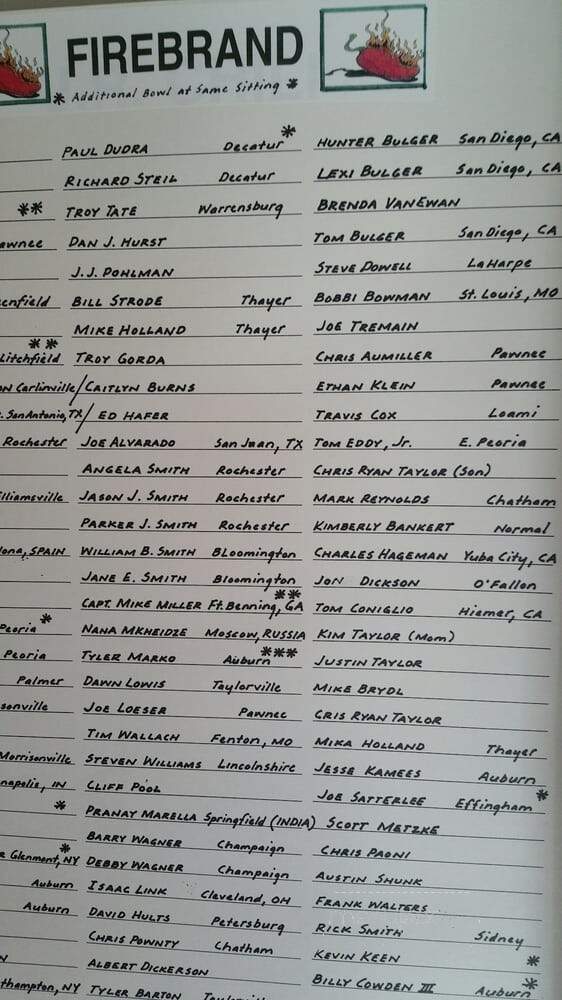 FIREBRAND
* Additional Bowl at Same Sitting *
PAUL DUDRA Decatur *
RICHARD STEIL Decatur
** TROY TATE Warrensburg
awnee DAN J. HURST
J.J. POHLMAN
enfield BILL STRODE Thayer
MIKE HOLLAND Thayer
Litchfield ** TROY GORDA
ON Carlinville/CAITLYN BURNS
. San Antonio, TX/ ED HAFER
Rochester JOE ALVARADO San Juan, TX
ANGELA SMITH Rochester
lliamsville JASON J. SMITH Rochester
PARKER J. SMITH Rochester
lona, SPAIN WILLIAM B. SMITH BLoomington
JANE E. SMITH Bloomington
CAPT. MIKE MILLER Ft. Benning, GA **
Peoria * NANA MKHEIDZE Moscow, RUSSIA
Peoria TYLER MARKO Auburn ***
Palmer DAWN LOWIS Taylorville
sonville JOE LOESER Pawnee
TIM WALLACH Fenton, MO
Morrisonville STEVEN WILLIAMS Lincolnshire
napolis, IN CLIFF POOL
* PRANAY MARELLA Springfield (INDIA)
BARRY WAGNER Champaign
Glenmont, NY * DEBBY WAGNER Champaign
Auburn ISAAC LINK Cleveland, OH
Auburn DAVID HULTS Petersburg
CHRIS POWNTY Chatham
N ALBERT DICKERSON
thampton, NY TYLER BARTON
HUNTER BULGER San Diego, CA
LEXI BULGER San Diego, CA
BRENDA VANEWAN
TOM BULGER San Diego, CA
STEVE DOWELL LaHarpe
BOBBI BOWMAN St. Louis, MO
JOE TREMAIN
CHRIS AUMILLER Pawnee
ETHAN KLEIN Pawnee
TRAVIS COX Loami
TOM EDDY, Jr. E. Peoria
CHRIS RYAN TAYLOR (Son)
MARK REYNOLDS Chatham
KIMBERLY BANKERT Normal
CHARLES HAGEMAN Yuba City, CA
JON DICKSON O'Fallon
TOM CONIGLIO Hiemer, CA
KIM TAYLOR (Mom)
JUSTIN TAYLOR
MIKE BRYDL
CRIS RYAN TAYLOR
MIKA HOLLAND Thayer
JESSE KAMEES Auburn
JOE SATTERLEE Effingham *
SCOTT METZKE
CHRIS PAONI
AUSTIN SHUNK
FRANK WALTERS
RICK SMITH Sidney
KEVIN KEEN *
BILLY COWDEN III Auburn *